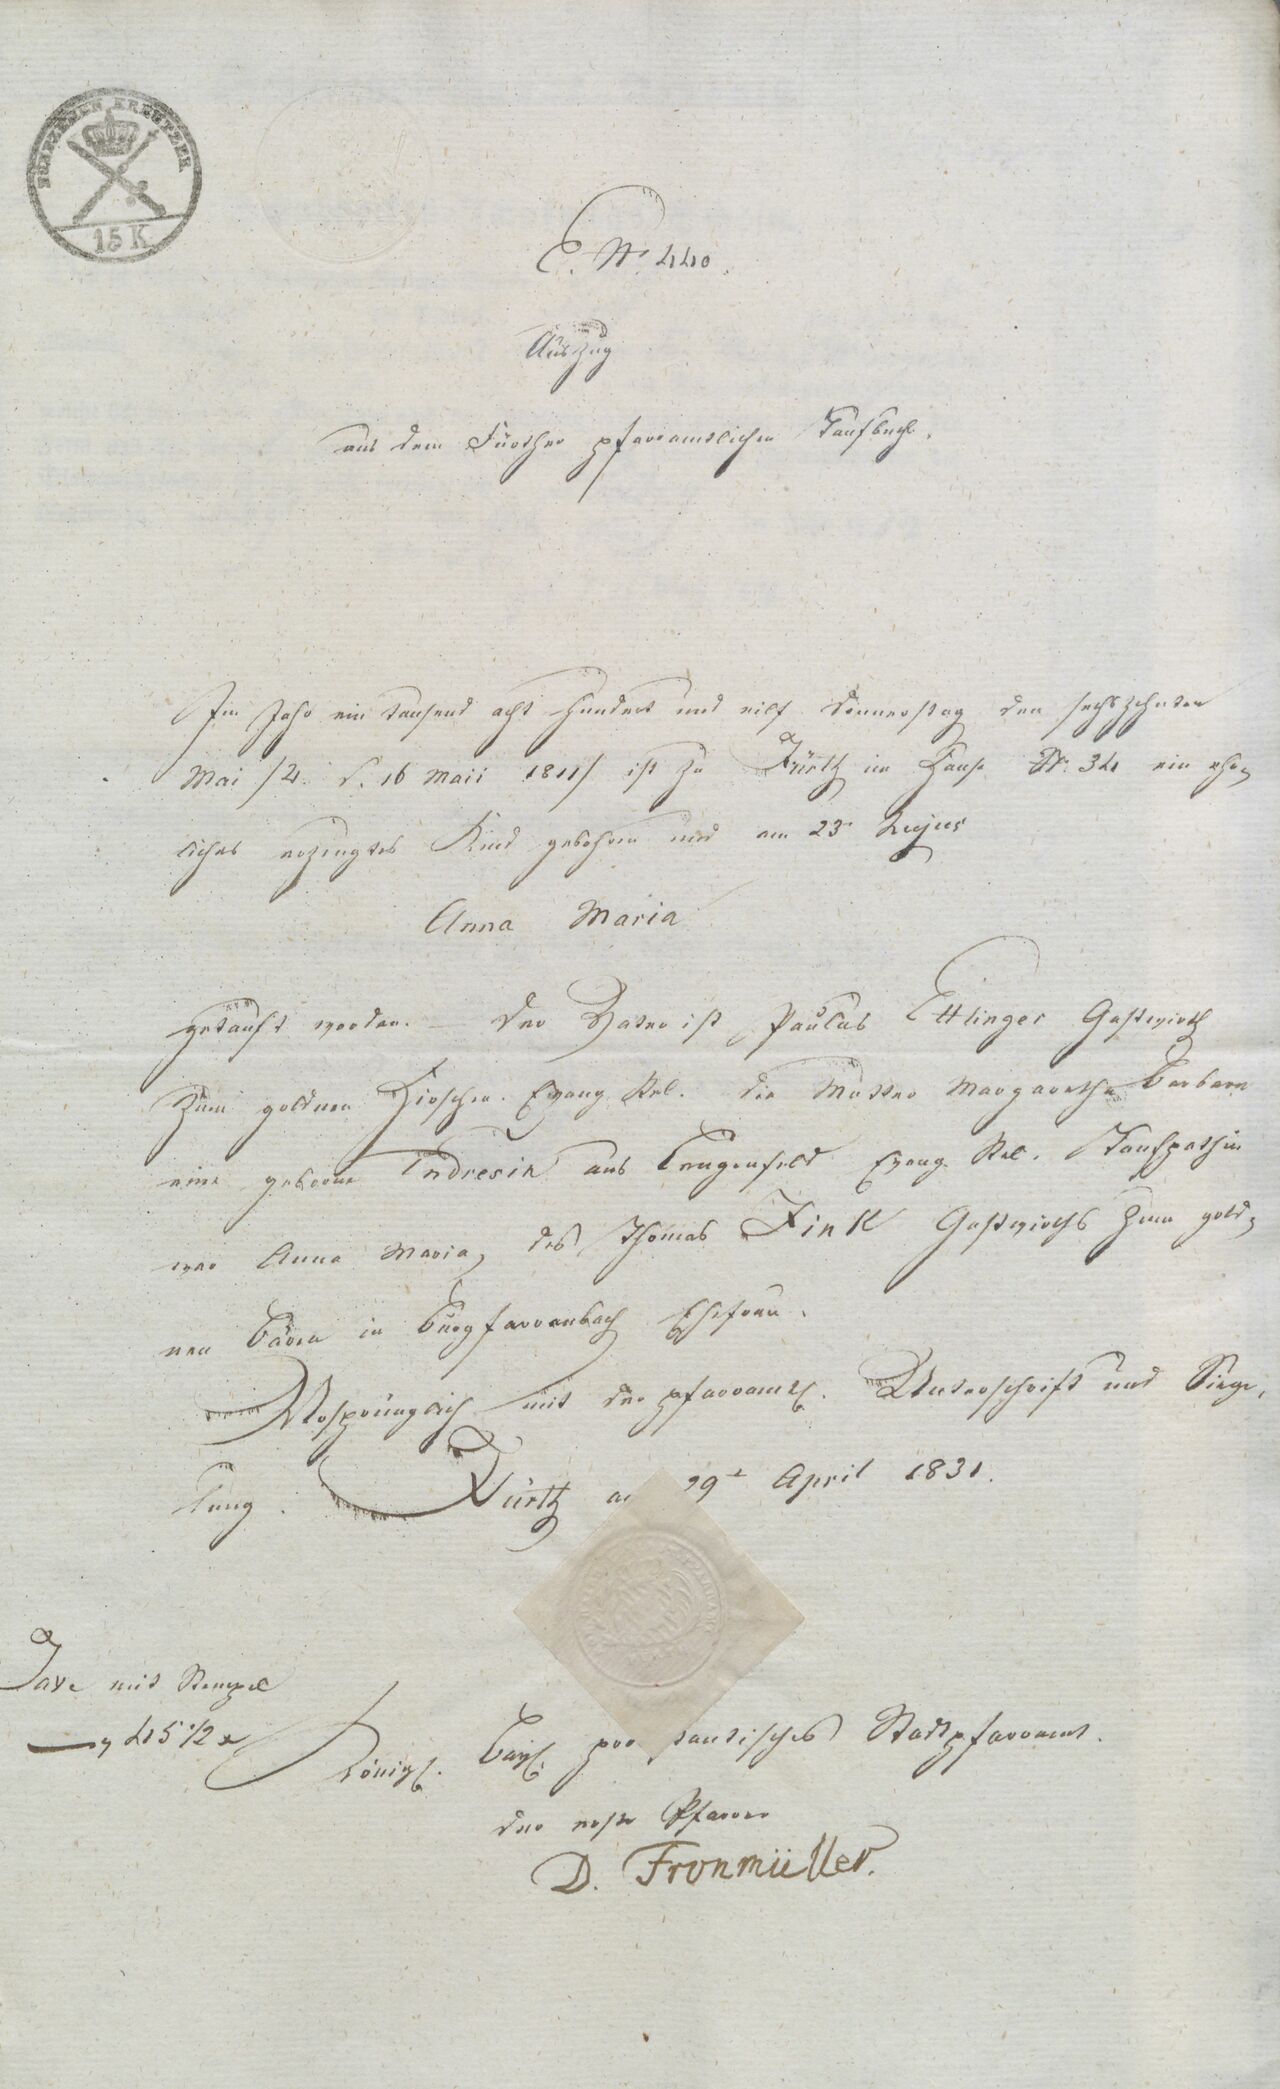 FÜNFZEHEN KREUTZER
15 K
E. No. 440.
Auszug
aus dem Fürther pfarramtlichen Taufbuch.
Im Jahr ein tausend acht hundert und eilf Donnerstag den sechszehnten
Mai /d. 16 Maii 1811/ ist zu Fürth im Hause No. 34 ein ehe-
liches erzeugtes Kind gebohren und am 23. hujus
Anna Maria
getauft worden. – Der Vater ist Paulus Ettlinger Gastwirth
zum goldnen Hirschen. Evang. Rel. die Mutter Margaretha Barbara
eine geborne Endresin aus Langenfeld Evang. Rel. Taufpathin
war Anna Maria, des Thomas Fink Gastwirths zum gold-
nen Bären in Burgfarrnbach Ehefrau.
Ursprünglich mit der pfarramtl. Unterschrift und Siege-
lung. Fürth 29t April 1831.
Taxe mit Stempel
45 1/2 x
Königl. Bayr. pro tantisches Stadtpfarramt.
der erste Pfarrer
D. Fronmüller.